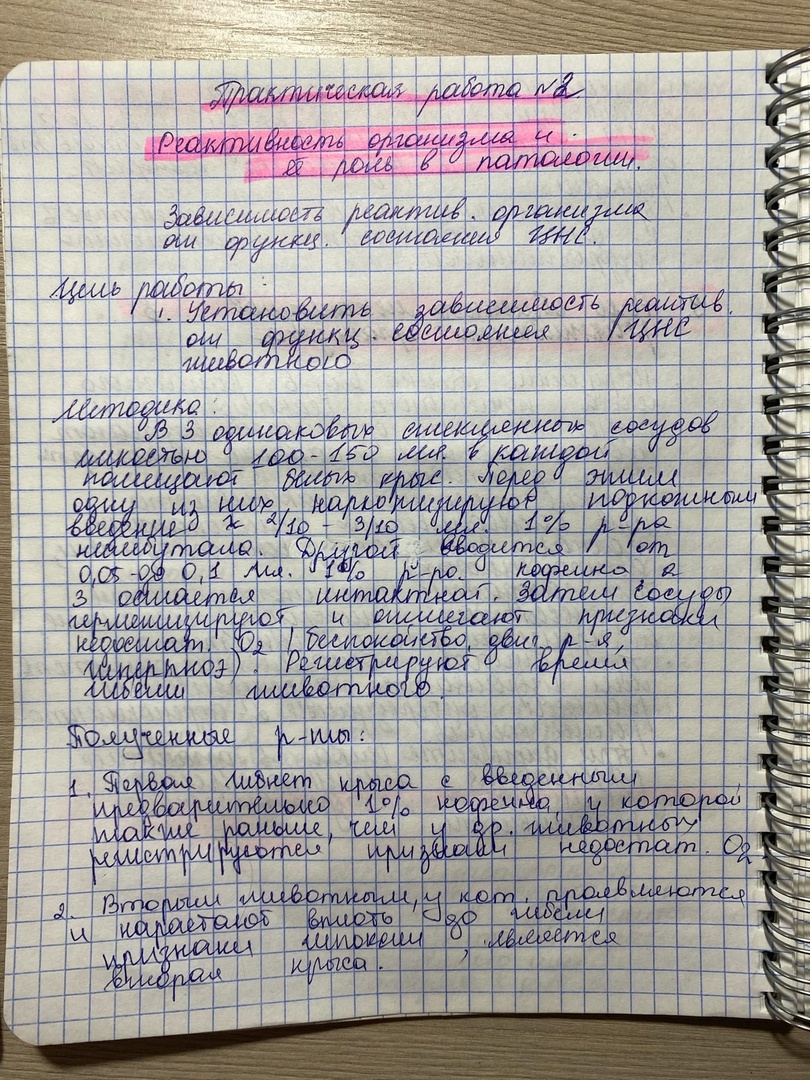 Практическая работа №2.
Реактивность организма и
её роль в патологии.
Зависимость реактив. организма
от функц. состояния ЦНС.
Цель работы:
1. Установить зависимость реактив.
от функц. состояния ЦНС
животного
Методика:
В 3 одинаковых стеклянных сосудов
ёмкостью 100-150 мл в каждой
помещают белых крыс. Перед этим
одну из них наркотизируют подкожным
введение 2/10 - 3/10 мл. 1% р-ра
нембутала. Другой вводится от
0,05 до 0,1 мл. 1% р-ра. кофеина, а
3 остается интактной. Затем сосуды
герметизируют и отмечают признаки
недостат. O2 (беспокойство, двиг. р-я,
гиперпноэ). Регистрируют время
гибели животного.
Полученные р-ты:
1. Первая гибнет крыса с введенным
предварительно 1% кофеина, у которой
также раньше, чем у др. животных
регистрируются признаки недостат. O2
2. Вторым животным, у кот. проявляются
и нарастают вплоть до гибели
признаки гипоксии, является
вторая крыса.